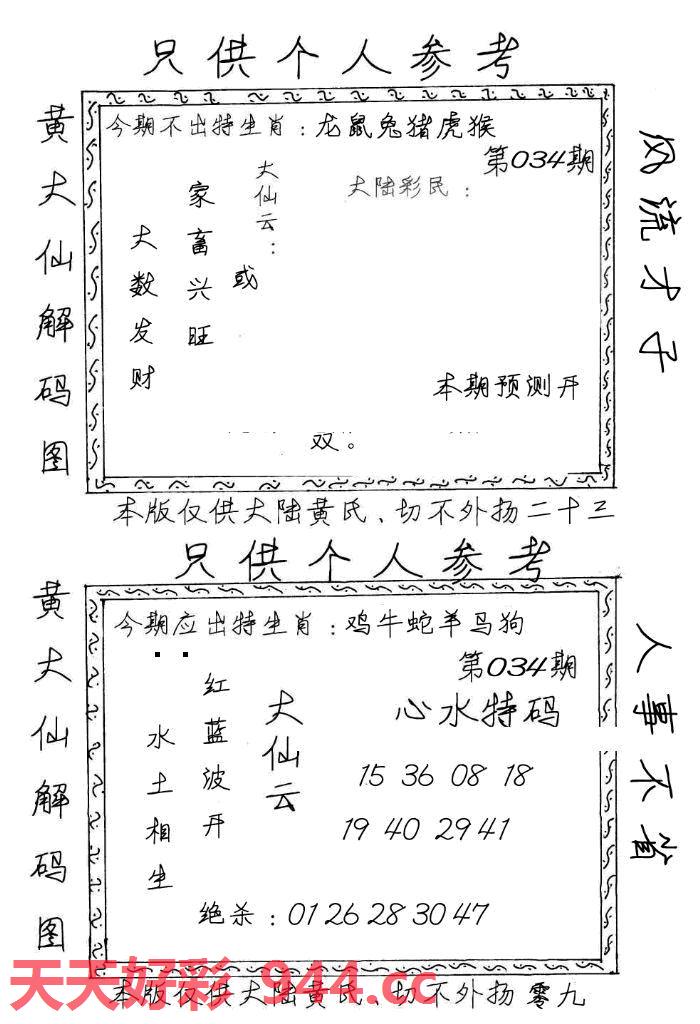 只供个人参考
黄大仙解码图
今期不出特生肖：龙鼠兔猪虎猴
第034期
大仙云：
大陆彩民：
家畜兴旺
或
大数发财
本期预测开
双。
风流才子
本版仅供大陆黄氏、切不外扬二十三
只供个人参考
黄大仙解码图
今期应出特生肖：鸡牛蛇羊马狗
第034期
红蓝波开
大仙云
水土相生
心水特码
15 36 08 18
19 40 29 41
绝杀：01 26 28 30 47
人事不省
天天好彩 944.cc
本版仅供大陆黄氏、切不外扬零九